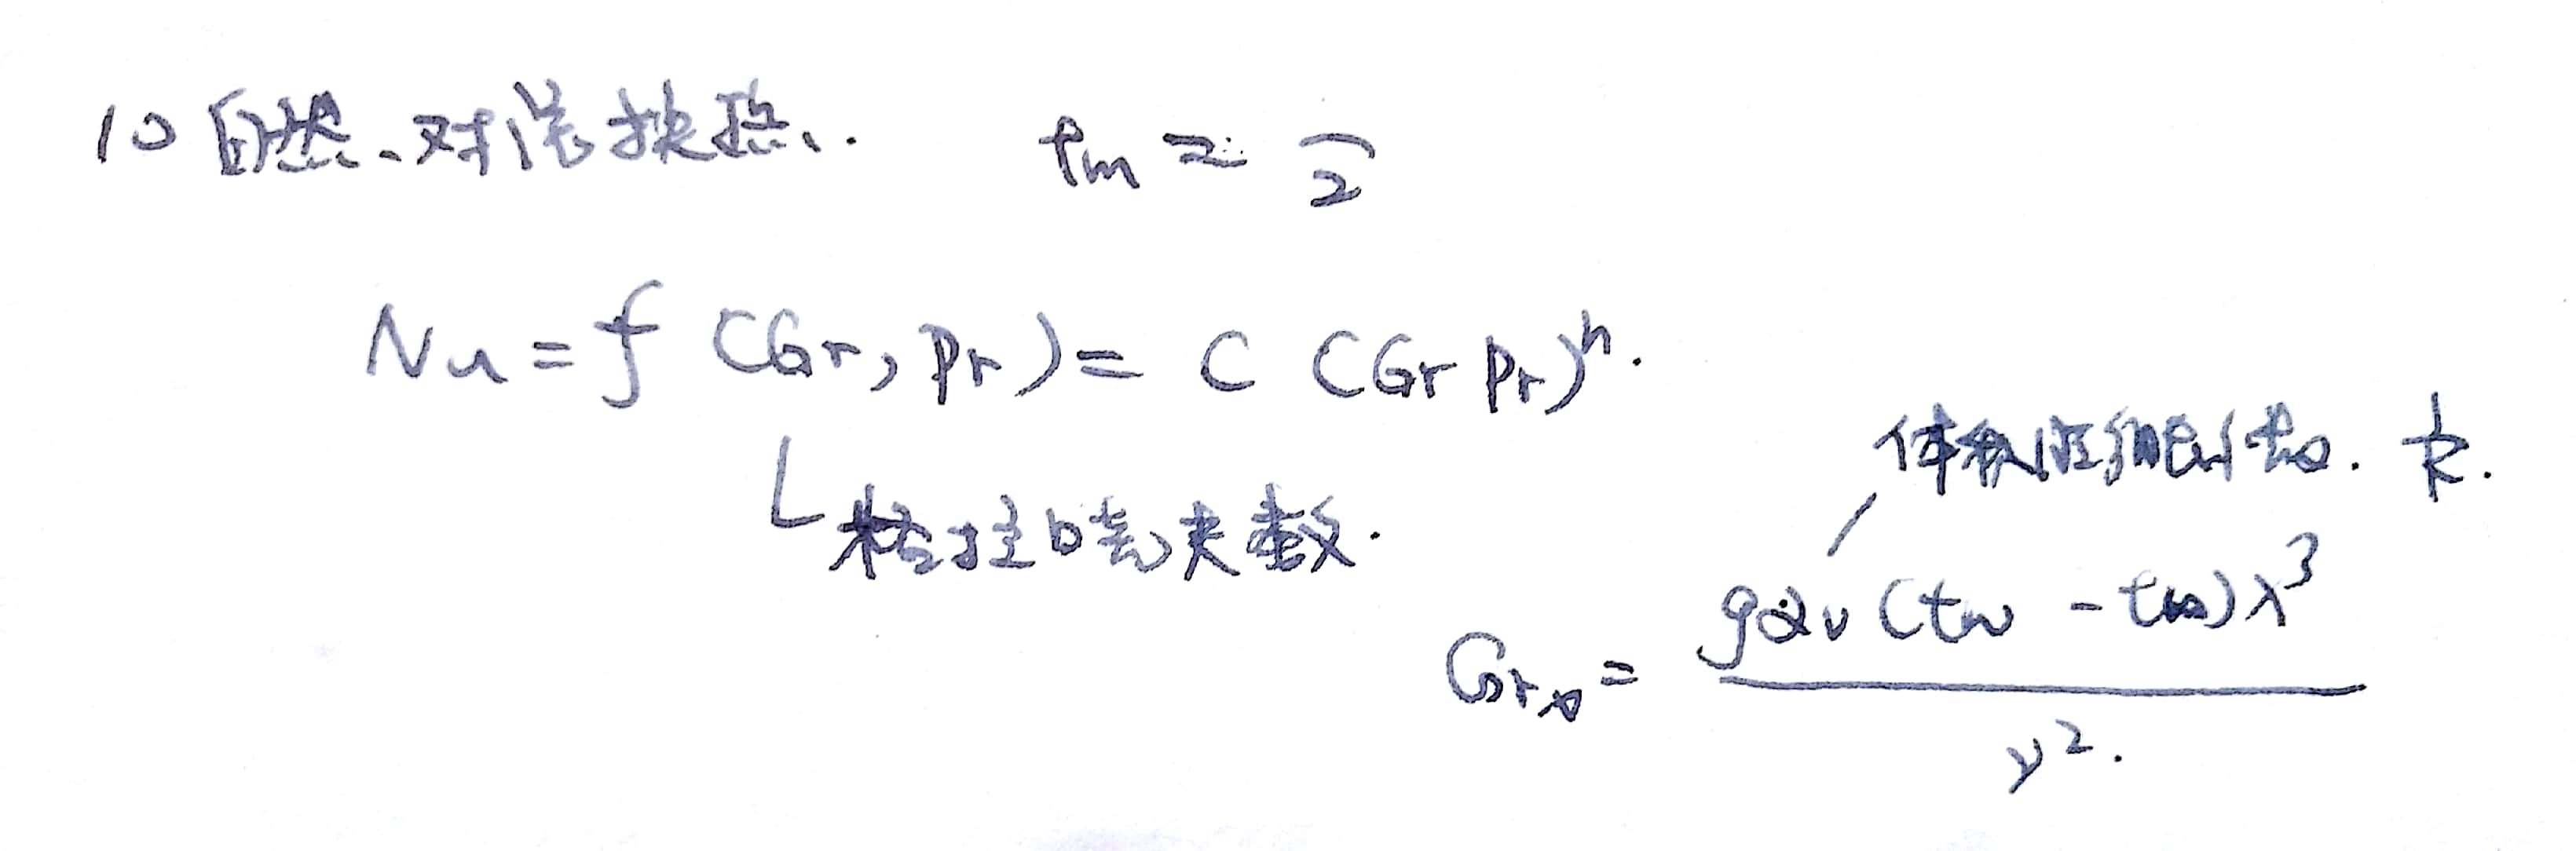 10 自然对流换热. tm = —/2
Nu = f (Gr, Pr) = C (Gr Pr)^n.
格拉晓夫数.
体积膨胀 1/K.
Gr_x = gα_v (t_w - t_∞) x^3 / ν^2.